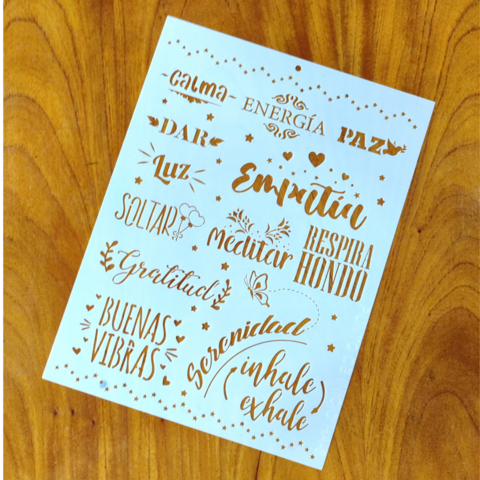 Calma
ENERGÍA
PAZ
DAR
Luz
Empatía
SOLTAR
Meditar
RESPIRA
HONDO
Gratitud
BUENAS
VIBRAS
Serenidad
inhale
exhale